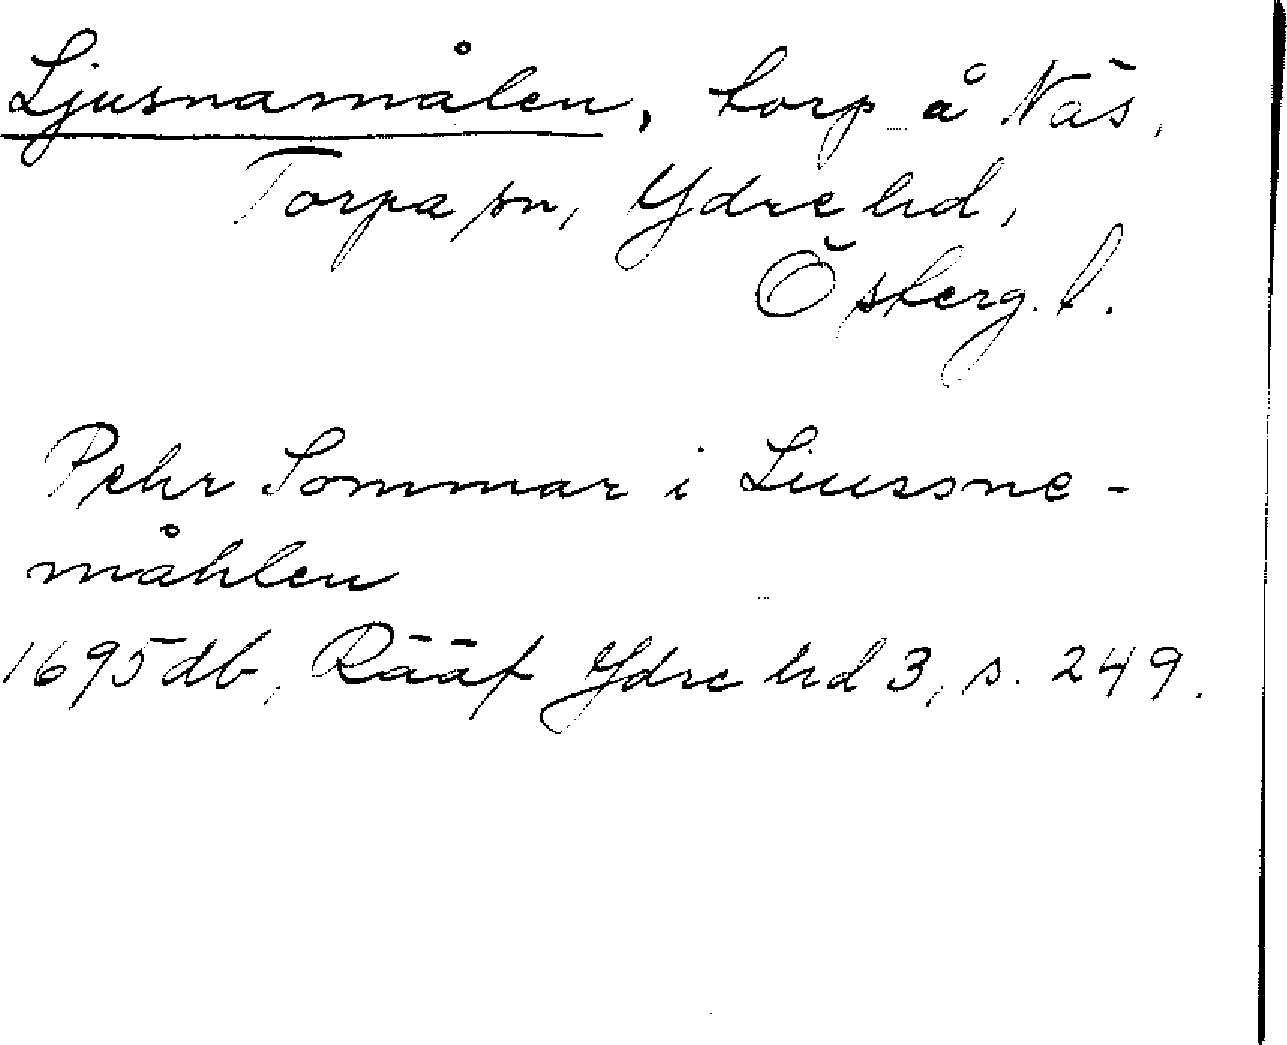 Ljusnamålen, torp å Näs,
Torpa sn, Ydre hd,
Österg. l.
Pehr Sommar i Liussne-
måhlen
1695 db, Rääf Ydre hd 3, s. 249.